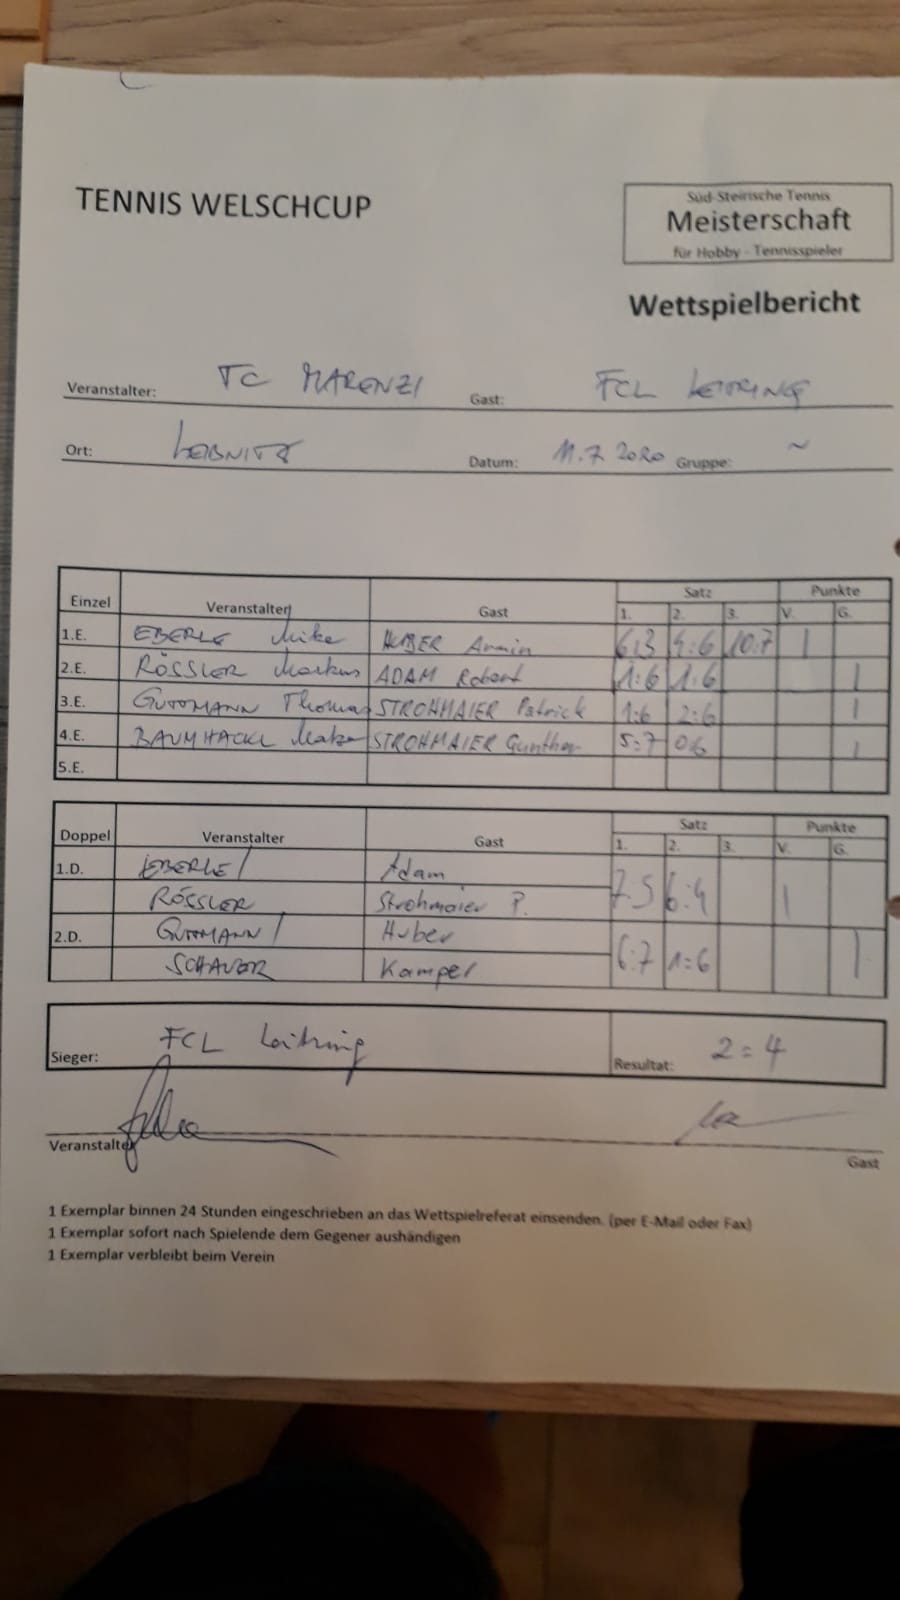 TENNIS WELSCHCUP
Süd-Steirische Tennis
Meisterschaft
für Hobby - Tennisspieler
Wettspielbericht
Veranstalter: TC MARENZI Gast: FCL LEITRING
Ort: LEIBNITZ Datum: 11.7 2020 Gruppe: ~
Einzel Veranstalter Gast Satz Punkte
1. 2. 3. V. G.
1.E. EBERLE Mike HUBER Armin 6:3 4:6 10:7 1
2.E. RÖSSLER Markus ADAM Robert 1:6 1:6 1
3.E. GUTTMANN Thomas STROHMAIER Patrick 1:6 2:6 1
4.E. BAUMHACKL STROHMAIER Gunther 5:7 0:6 1
5.E.
Doppel Veranstalter Gast Satz Punkte
1. 2. 3. V. G.
1.D. EBERLE / Adam 7:5 6:4 1
RÖSSLER Strohmaier P.
2.D. GUTTMANN / Huber 6:7 1:6 1
SCHAUER Kampel
Sieger: FCL Leitring Resultat: 2:4
Veranstalter
Gast
1 Exemplar binnen 24 Stunden eingeschrieben an das Wettspielreferat einsenden. (per E-Mail oder Fax)
1 Exemplar sofort nach Spielende dem Gegener aushändigen
1 Exemplar verbleibt beim Verein